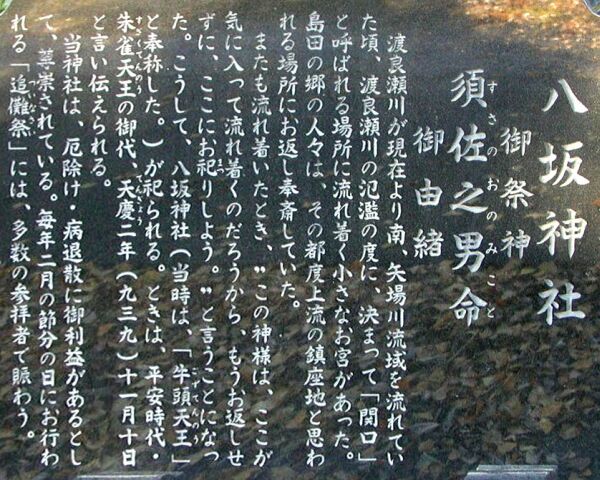 八坂神社
御祭神
すさのおのみこと
須佐之男命
御由緒
渡良瀬川が現在より南、矢場川流域を流れてい
た頃、渡良瀬川の氾濫の度に、決まって「開口」
と呼ばれる場所に流れ着く小さなお宮があった。
島田の郷の人々は、その都度上流の鎮座地と思わ
れる場所にお返し奉斎していた。
またも流れ着いたとき、〝この神様は、ここが
気に入って流れ着くのだろうから、もうお返しせ
ずに、ここにお祀りしよう。〟と言うことになっ
た。こうして、八坂神社（当時は、「牛頭天王」
と奉称した。）が祀られる。ときは、平安時代・
朱雀天王の御代、天慶二年（九三九）十一月十日
と言い伝えられる。
当神社は、厄除け・病退散に御利益があるとし
て、尊崇されている。毎年二月の節分の日にお行わ
れる「追儺祭」には、多数の参拝者で賑わう。